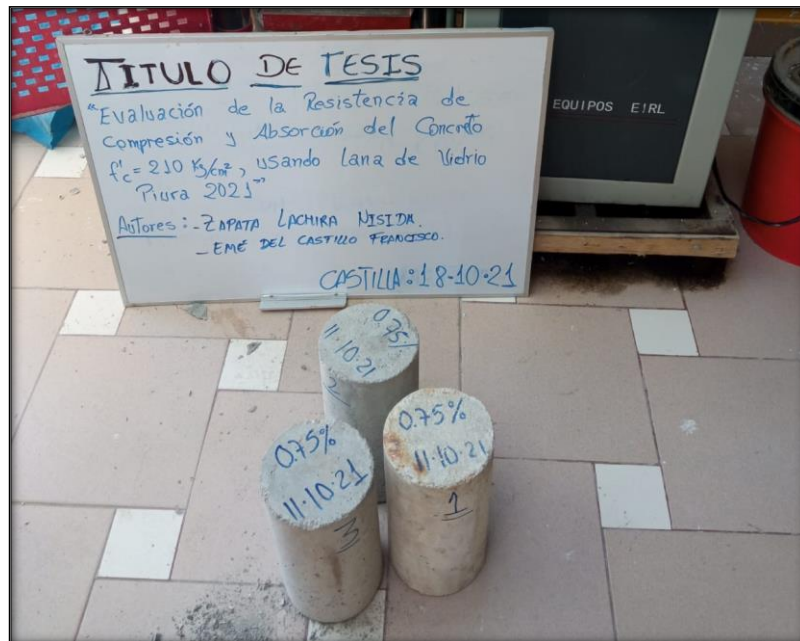 TITULO DE TESIS
"Evaluación de la Resistencia de
Compresión y Absorción del Concreto
f'c = 210 Kg/cm², usando Lana de Vidrio
Piura 2021"
Autores: - ZAPATA LACHIRA NISIDA.
- EMÉ DEL CASTILLO FRANCISCO.
CASTILLA: 18-10-21
EQUIPOS E!RL
0.75%
11-10-21
2
0.75%
11-10-21
1
0.75%
11-10-21
3